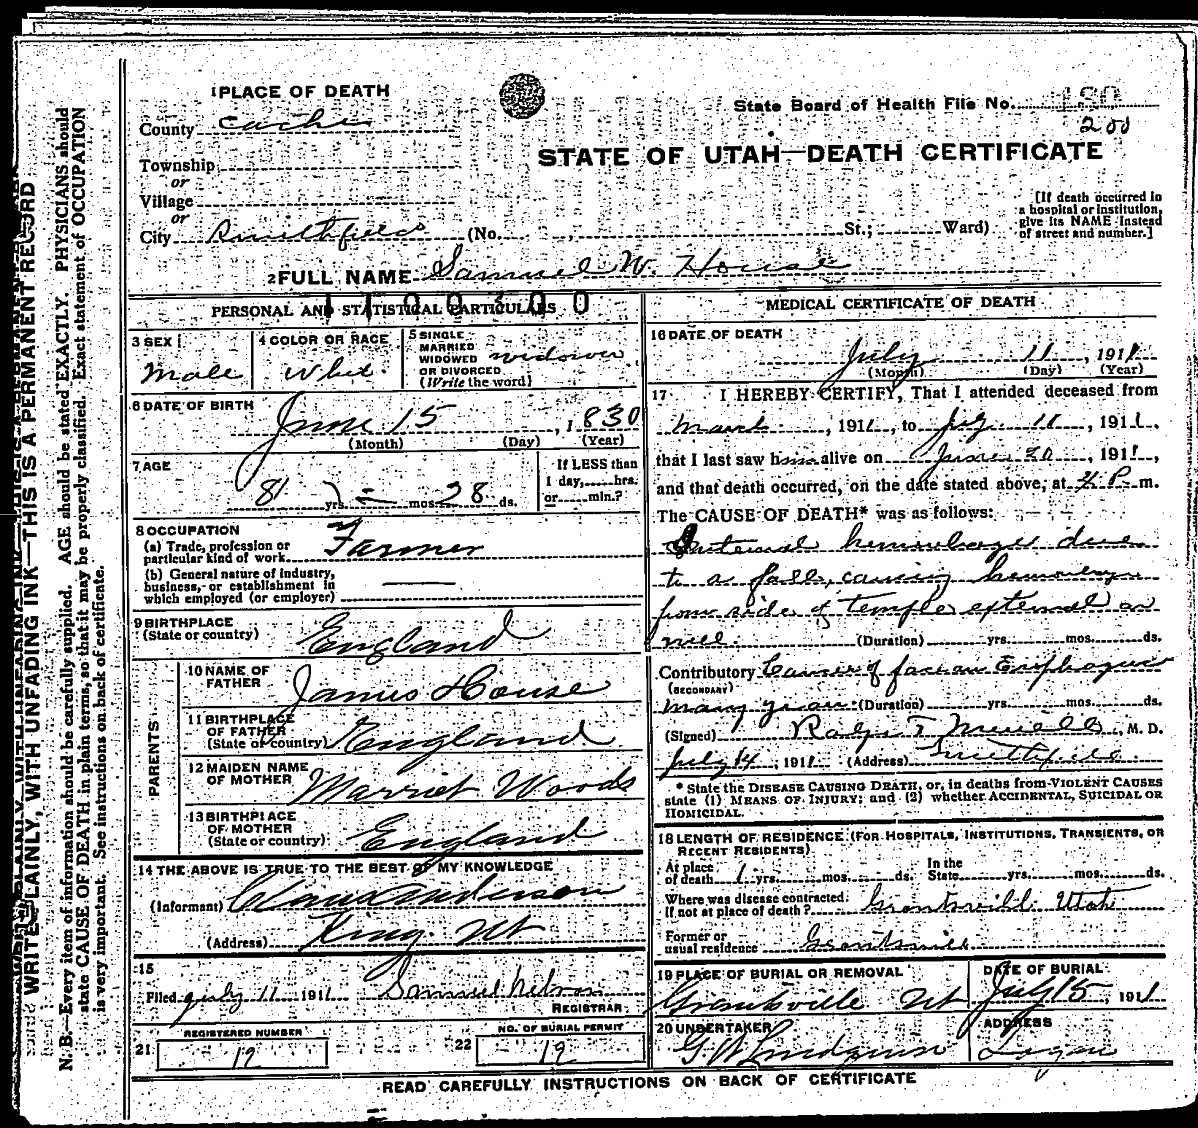 WRITE PLAINLY, WITH UNFADING INK—THIS IS A PERMANENT RECORD
N. B.—Every item of information should be carefully supplied. AGE should be stated EXACTLY. PHYSICIANS should
state CAUSE OF DEATH in plain terms, so that it may be properly classified. Exact statement of OCCUPATION
is very important. See instructions on back of certificate.
1 PLACE OF DEATH
County Cache
Township
or
Village
or
City Smithfield (No. , St.; Ward)
State Board of Health File No. 180
200
STATE OF UTAH—DEATH CERTIFICATE
[If death occurred in
a hospital or institution,
give its NAME instead
of street and number.]
2 FULL NAME Samuel W. House
PERSONAL AND STATISTICAL PARTICULARS
1100300
3 SEX
Male
4 COLOR OR RACE
White
5 SINGLE
MARRIED
WIDOWED
OR DIVORCED
(Write the word)
widower
6 DATE OF BIRTH
June 15, 1830
(Month) (Day) (Year)
7 AGE
81 yrs. mos. 28 ds.
If LESS than
1 day, hrs.
or min.?
8 OCCUPATION
(a) Trade, profession or
particular kind of work Farmer
(b) General nature of industry,
business, or establishment in
which employed (or employer)
9 BIRTHPLACE
(State or country) England
PARENTS
10 NAME OF
FATHER James House
11 BIRTHPLACE
OF FATHER
(State or country) England
12 MAIDEN NAME
OF MOTHER Harriet Woods
13 BIRTHPLACE
OF MOTHER
(State or country) England
14 THE ABOVE IS TRUE TO THE BEST OF MY KNOWLEDGE
(Informant) Anderson
(Address) King Ut
15
Filed July 11 1911 Samuel Nelson
REGISTRAR
REGISTERED NUMBER
21 19
NO. OF BURIAL PERMIT
22 19
MEDICAL CERTIFICATE OF DEATH
16 DATE OF DEATH
July 11, 1911
(Month) (Day) (Year)
17 I HEREBY CERTIFY, That I attended deceased from
March, 1911, to July 11, 1911,
that I last saw him alive on June 20, 1911,
and that death occurred, on the date stated above, at 4 P m.
The CAUSE OF DEATH* was as follows:
Internal hemorhage due
to a fall, causing hemorhage
from side of temple external as
well. (Duration) yrs. mos. ds.
Contributory Cancer of face
(SECONDARY)
many years (Duration) yrs. mos. ds.
(Signed) Ralph T Merrill, M. D.
July 14, 1911 (Address) Smithfield
* State the DISEASE CAUSING DEATH, or, in deaths from VIOLENT CAUSES
state (1) MEANS OF INJURY; and (2) whether ACCIDENTAL, SUICIDAL OR
HOMICIDAL.
18 LENGTH OF RESIDENCE (FOR HOSPITALS, INSTITUTIONS, TRANSIENTS, OR
RECENT RESIDENTS)
At place
of death 1 yrs. mos. ds. In the
State yrs. mos. ds.
Where was disease contracted.
If not at place of death? Grantsville Utah
Former or
usual residence Grantsville
19 PLACE OF BURIAL OR REMOVAL
Grantsville Ut
DATE OF BURIAL
July 15, 1911
20 UNDERTAKER
G W Lindquist
ADDRESS
Logan
READ CAREFULLY INSTRUCTIONS ON BACK OF CERTIFICATE